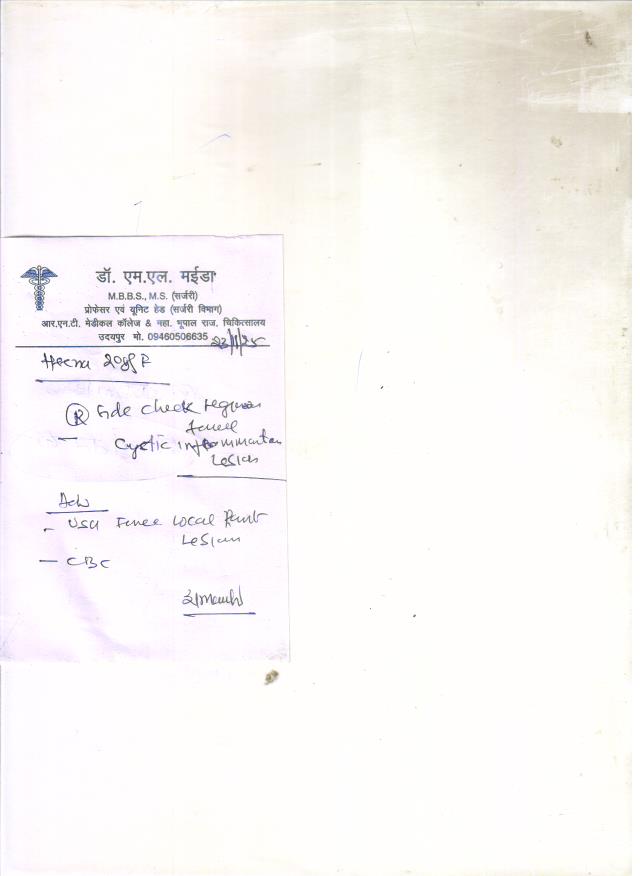 डॉ. एम.एल. मईडा
M.B.B.S., M.S. (सर्जरी)
प्रोफेसर एवं यूनिट हेड (सर्जरी विभाग)
आर.एन.टी. मेडीकल कॉलेज & महा. भूपाल राज. चिकित्सालय
उदयपुर मो. 09460506635
Heena 20y F
(R) side cheek region
Cystic inflammatory
Lesion
Adv
- USG Local Part
Lesion
- CBC